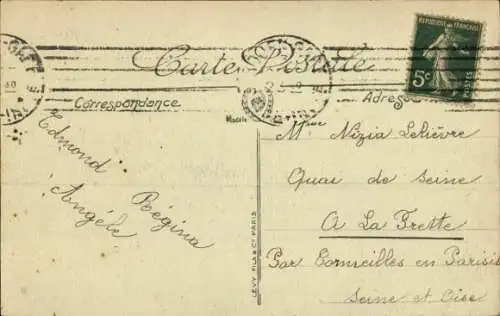 RÉPUBLIQUE FRANÇAISE
5c
POSTES
Carte Postale
Correspondance
Adresse
Edmond
Régina
Angèle
LÉVY FILS & Cie PARIS
Mme Nizia Lelièvre
Quai de Seine
A La Frette
Par Cormeilles en Parisis
Seine et Oise